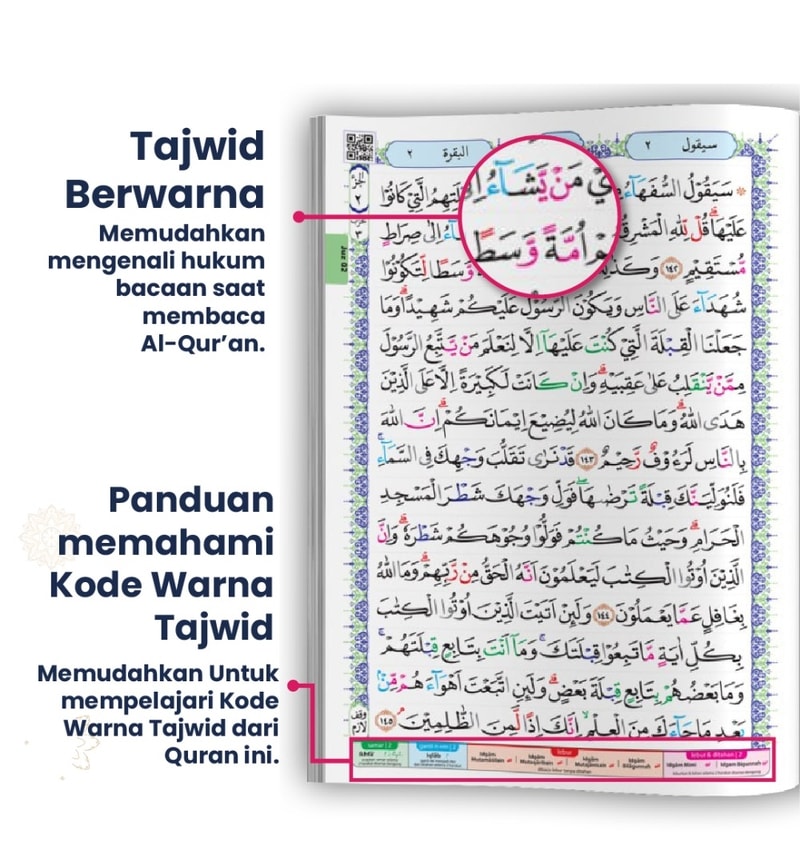 Tajwid
Berwarna
Memudahkan
mengenali hukum
bacaan saat
membaca
Al-Qur’an.
Panduan
memahami
Kode Warna
Tajwid
Memudahkan Untuk
mempelajari Kode
Warna Tajwid dari
Quran ini.
سيقول ٢
البقرة ٢
الجزء
٢
Juz 02
سَيَقُوْلُ السُّفَهَاۤءُ
لَتِهِمُ الَّتِيْ كَانُوْا
يْ مَنْ يَّشَاۤءُ اِ
اُمَّةً وَّسَطًا
عَلَيْهَاۗ قُلْ لِّلّٰهِ الْمَشْرِقُ
اِلٰى صِرَاطٍ
مُّسْتَقِيْمٍ ١٤٢ وَكَذٰ
وَّسَطًا لِّتَكُوْنُوْا
شُهَدَاۤءَ عَلَى النَّاسِ وَيَكُوْنَ الرَّسُوْلُ عَلَيْكُمْ شَهِيْدًاۗ وَمَا
جَعَلْنَا الْقِبْلَةَ الَّتِيْ كُنْتَ عَلَيْهَآ اِلَّا لِنَعْلَمَ مَنْ يَّتَّبِعُ الرَّسُوْلَ
مِمَّنْ يَّنْقَلِبُ عَلٰى عَقِبَيْهِۗ وَاِنْ كَانَتْ لَكَبِيْرَةً اِلَّا عَلَى الَّذِيْنَ
هَدَى اللّٰهُۗ وَمَا كَانَ اللّٰهُ لِيُضِيْعَ اِيْمَانَكُمْۗ اِنَّ اللّٰهَ
بِالنَّاسِ لَرَءُوْفٌ رَّحِيْمٌ ١٤٣ قَدْ نَرٰى تَقَلُّبَ وَجْهِكَ فِى السَّمَاۤءِۚ
فَلَنُوَلِّيَنَّكَ قِبْلَةً تَرْضٰىهَاۖ فَوَلِّ وَجْهَكَ شَطْرَ الْمَسْجِدِ
الْحَرَامِۗ وَحَيْثُ مَا كُنْتُمْ فَوَلُّوْا وُجُوْهَكُمْ شَطْرَهٗۗ وَاِنَّ
الَّذِيْنَ اُوْتُوا الْكِتٰبَ لَيَعْلَمُوْنَ اَنَّهُ الْحَقُّ مِنْ رَّبِّهِمْۗ وَمَا اللّٰهُ
بِغَافِلٍ عَمَّا يَعْمَلُوْنَ ١٤٤ وَلَىِٕنْ اَتَيْتَ الَّذِيْنَ اُوْتُوا الْكِتٰبَ
بِكُلِّ اٰيَةٍ مَّا تَبِعُوْا قِبْلَتَكَۚ وَمَآ اَنْتَ بِتَابِعٍ قِبْلَتَهُمْۚ
وَمَا بَعْضُهُمْ بِتَابِعٍ قِبْلَةَ بَعْضٍۗ وَلَىِٕنِ اتَّبَعْتَ اَهْوَاۤءَهُمْ مِّنْۢ
بَعْدِ مَا جَاۤءَكَ مِنَ الْعِلْمِ اِنَّكَ اِذًا لَّمِنَ الظّٰلِمِيْنَ ١٤٥
وقف لازم